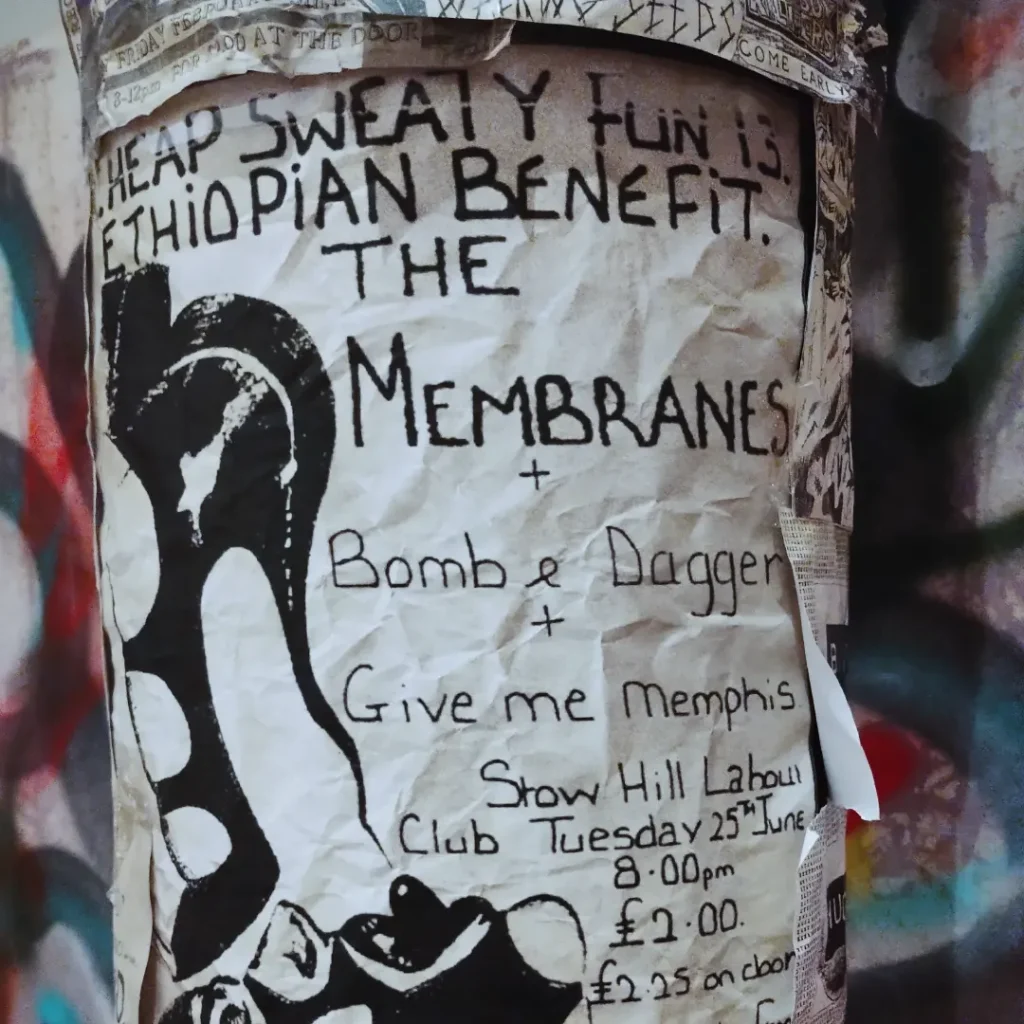 FRIDAY FEBRUARY
FOR AT THE DOOR
8-12pm
SEEDS
COME EARLY
HEAP SWEATY FUN 13.
ETHIOPIAN BENEFIT.
THE
MEMBRANES
+
Bomb & Dagger
+
Give me Memphis
Stow Hill Labour
Club Tuesday 25TH June
8.00pm
£2.00.
£2.25 on door